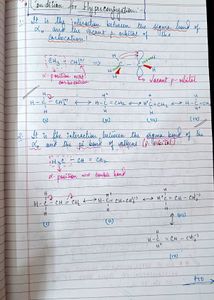 Condition for Hyperconjugation
1. It is the interaction between the sigma bond of
Cα and the vacant p orbital of the
carbocation.
CH3 - CH2+
α position wrt
carbocation
vacant p-orbital
H - C - CH2+ ↔ H - C = CH2 ↔ H+ C = CH2 ↔ H - C = CH2
(i) (ii) (iii) (iv)
2. It is the interaction between the sigma bond of
Cα and the pi bond of alkene (p orbital)
H3C - CH = CH2
α position wrt double bond
H - C - CH = CH2 ↔ H - C = CH - CH2 ↔ H+ C = CH - CH2
(i) (ii) (iii)
H - C = CH - CH2
(iv)
PTO